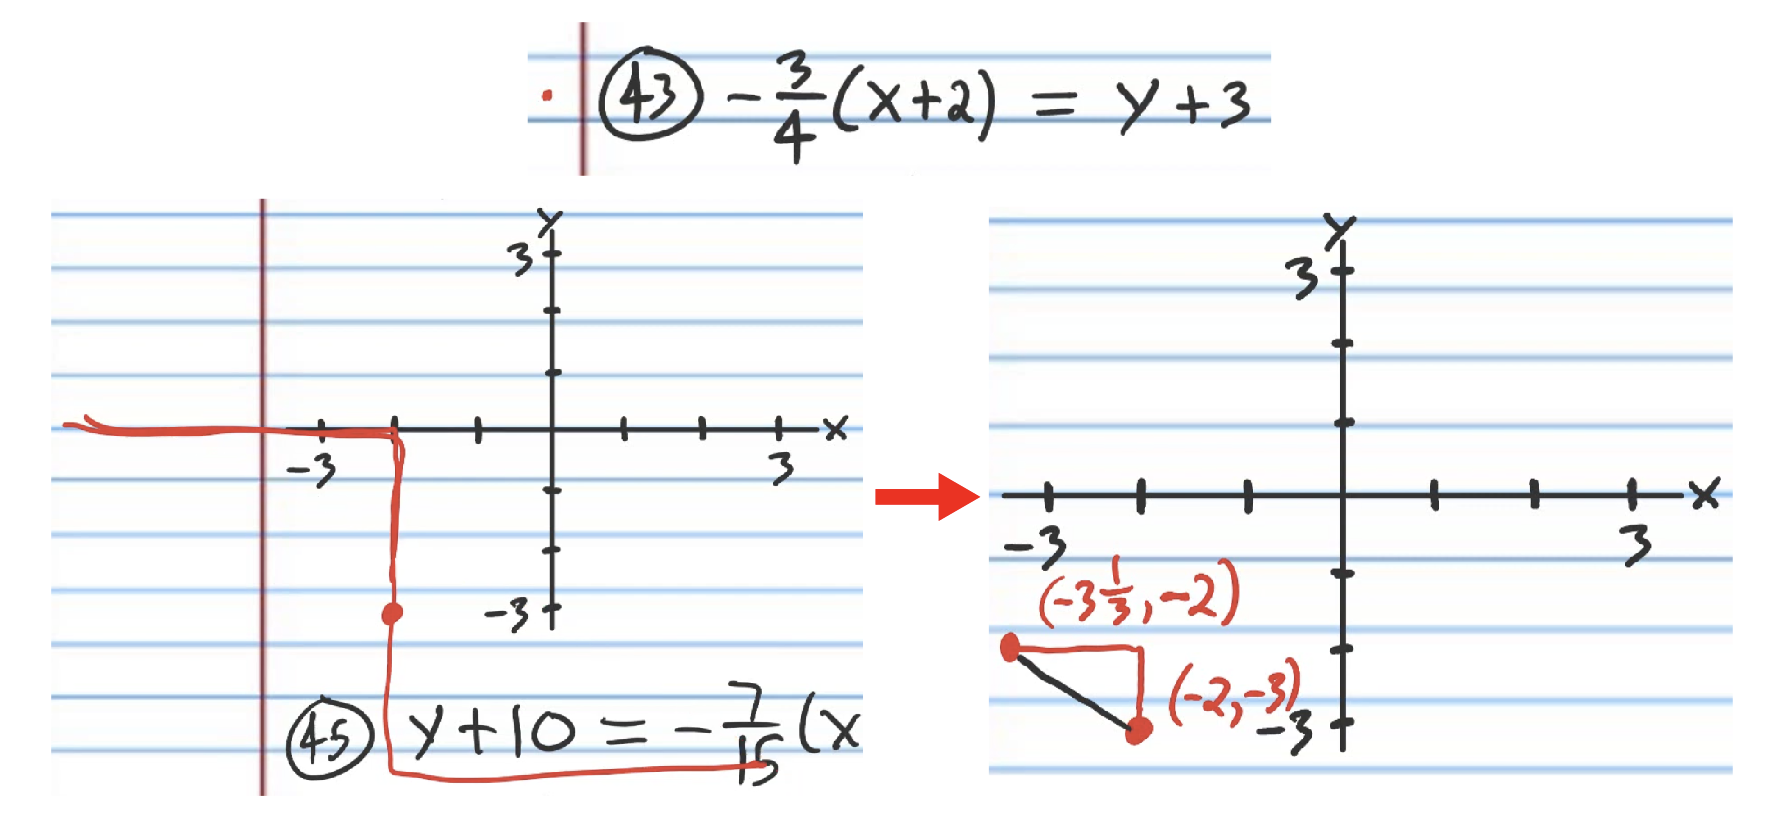 43 -3/4(x+2) = y+3
y
3
x
-3
3
-3
45 y+10 = -7/15(x
y
3
x
-3
3
(-3 1/3, -2)
(-2, -3)
-3